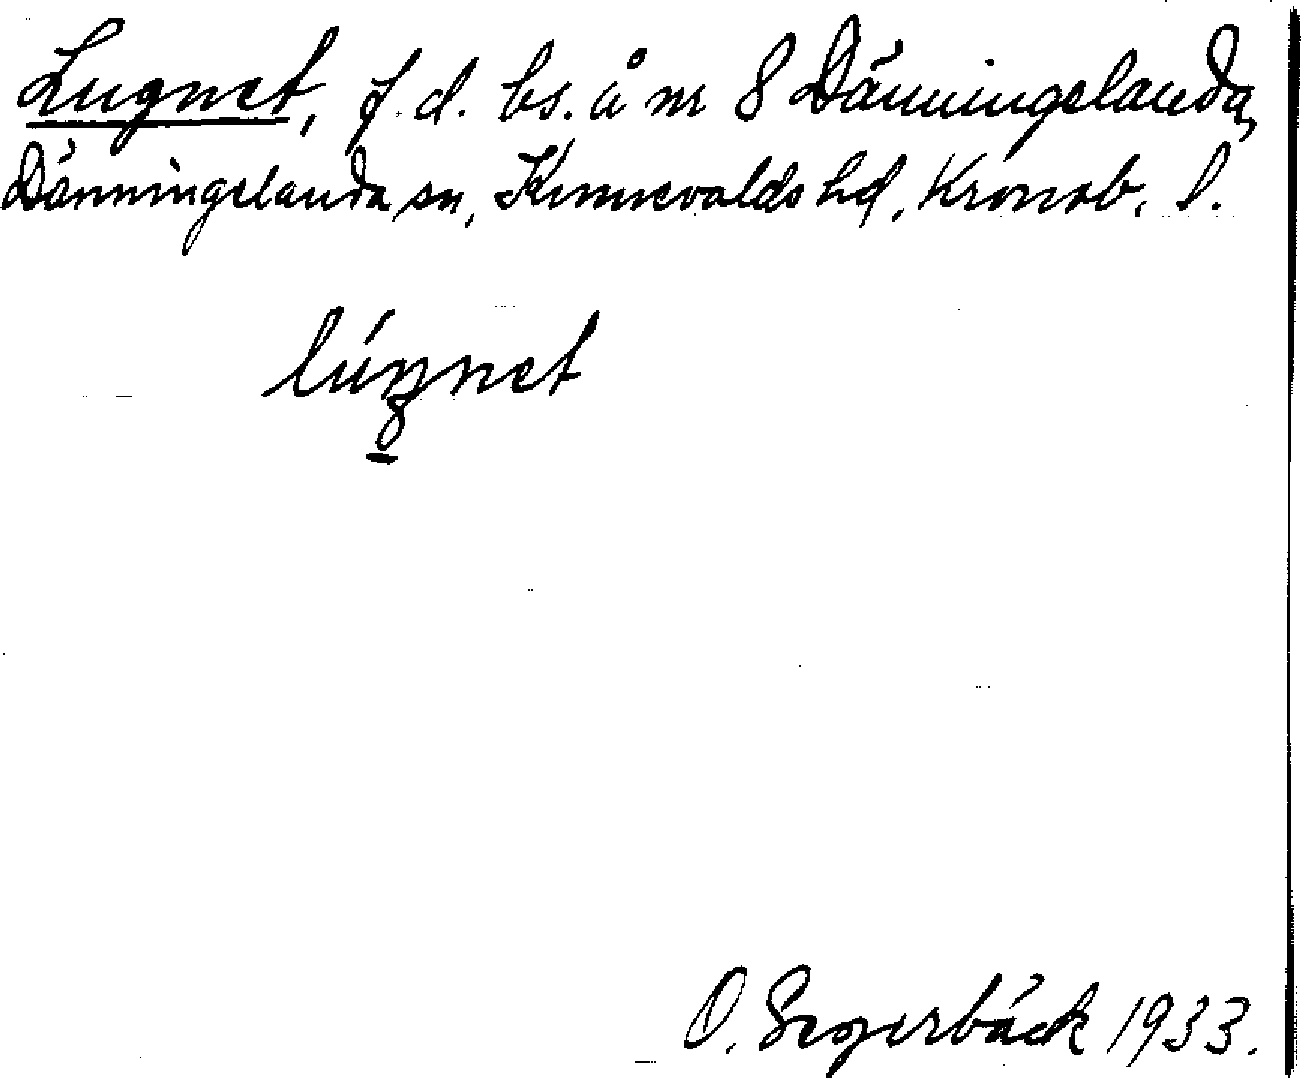 Lugnet, f.d. bs. å nr 8 Dänningelanda,
Dänningelanda sn, Kinnevalds hd, Kronob. l.
lúŋnet
O. Segerbäck 1933.